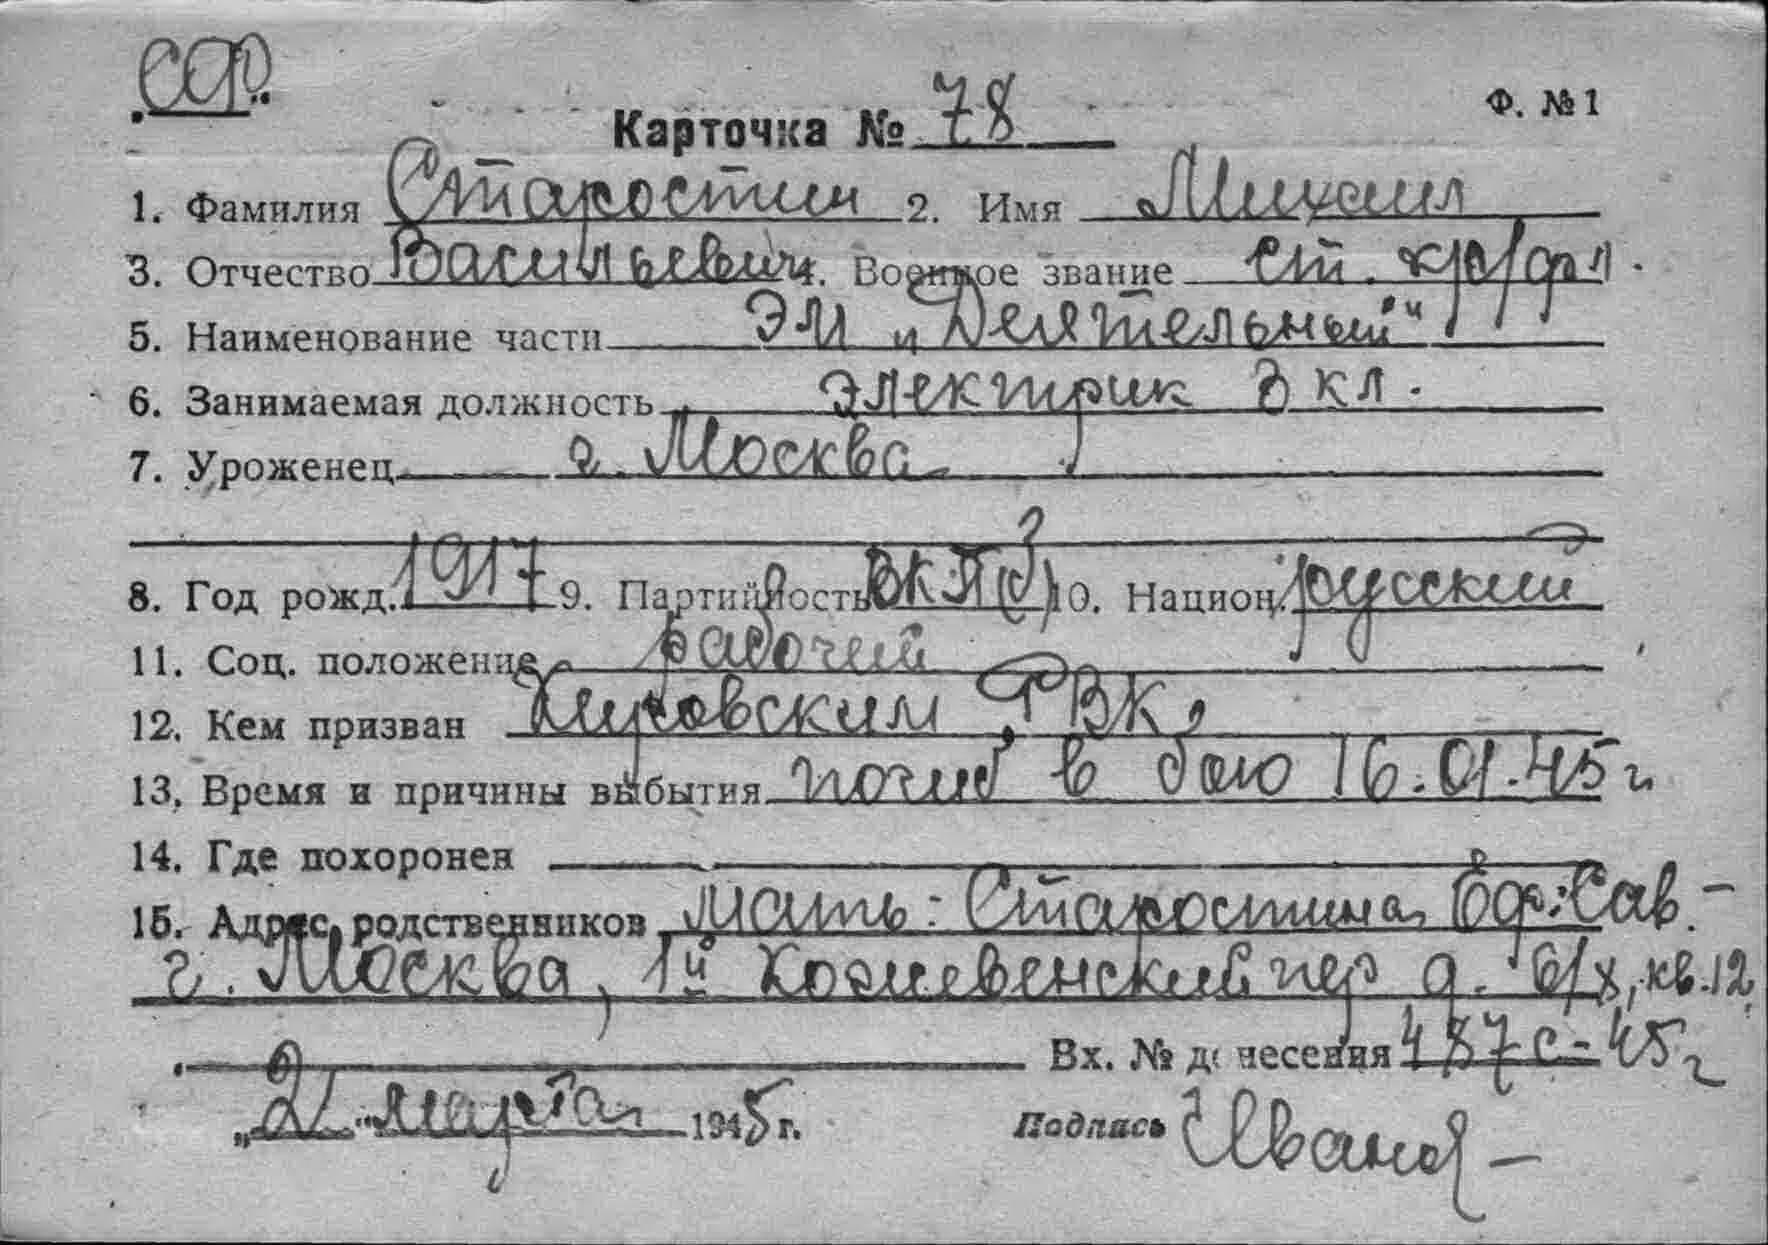 „СФ“
Карточка № 78 Ф. № 1
1. Фамилия Старостин 2. Имя Михаил
3. Отчество Васильевич 4. Военное звание ст. кр/фл.
5. Наименование части ЭМ „Деятельный“
6. Занимаемая должность электрик 3 кл.
7. Уроженец г. Москва
8. Год рожд. 1917 9. Партийность ВКП(б) 10. Национ. русский
11. Соц. положение рабочий
12. Кем призван Кировским РВК
13. Время и причины выбытия погиб в бою 16.01.45 г
14. Где похоронен
15. Адрес родственников мать: Старостина Еф. Сав. –
г. Москва, 1й Кожевенский пер д. 6/х, кв. 12
Вх. № донесения 487с-45 г
„2“ марта 1945 г. Подпись Иванов